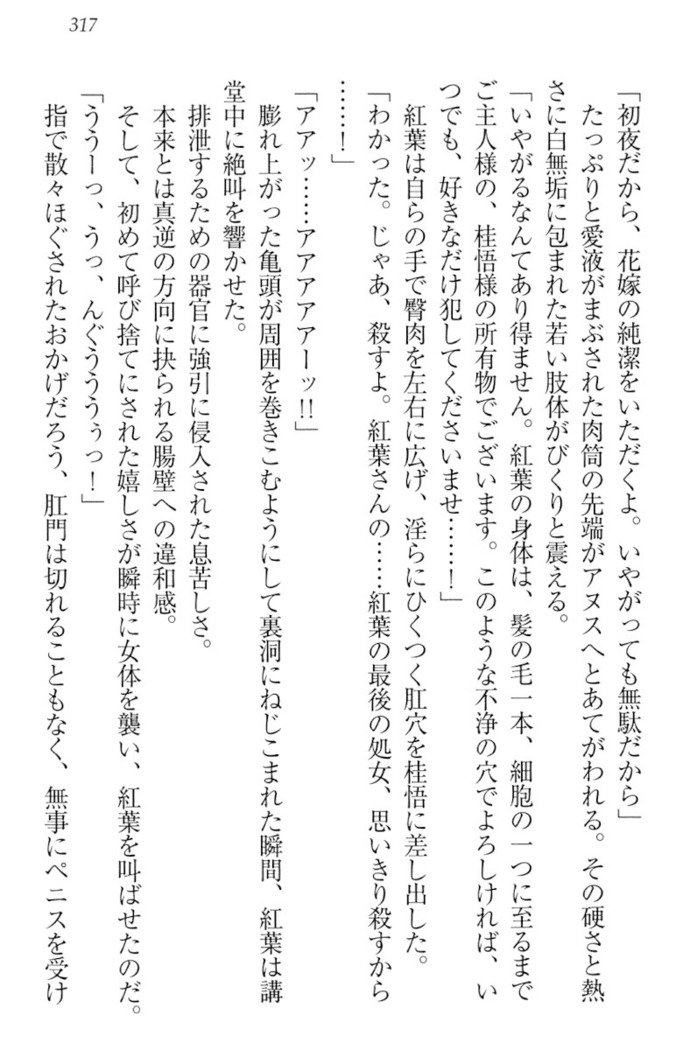 317
「初夜だから、花嫁の純潔をいただくよ。いやがっても無駄だから」
たっぷりと愛液がまぶされた肉筒の先端がアヌスへとあてがわれる。その硬さと熱
さに白無垢に包まれた若い肢体がびくりと震える。
「いやがるなんてあり得ません。紅葉の身体は、髪の毛一本、細胞の一つに至るまで
ご主人様の、桂悟様の所有物でございます。このような不浄の穴でよろしければ、い
つでも、好きなだけ犯してくださいませ……！」
紅葉は自らの手で臀肉を左右に広げ、淫らにひくつく肛穴を桂悟に差し出した。
「わかった。じゃあ、殺すよ。紅葉さんの……紅葉の最後の処女、思いきり殺すから
……！」
「アアッ……アアアアアーッ!!」
膨れ上がった亀頭が周囲を巻きこむようにして裏洞にねじこまれた瞬間、紅葉は講
堂中に絶叫を響かせた。
排泄するための器官に強引に侵入された息苦しさ。
本来とは真逆の方向に抉られる腸壁への違和感。
そして、初めて呼び捨てにされた嬉しさが瞬時に女体を襲い、紅葉を叫ばせたのだ。
「ううーっ、うっ、んぐうううぅっ！」
指で散々ほぐされたおかげだろう、肛門は切れることもなく、無事にペニスを受け